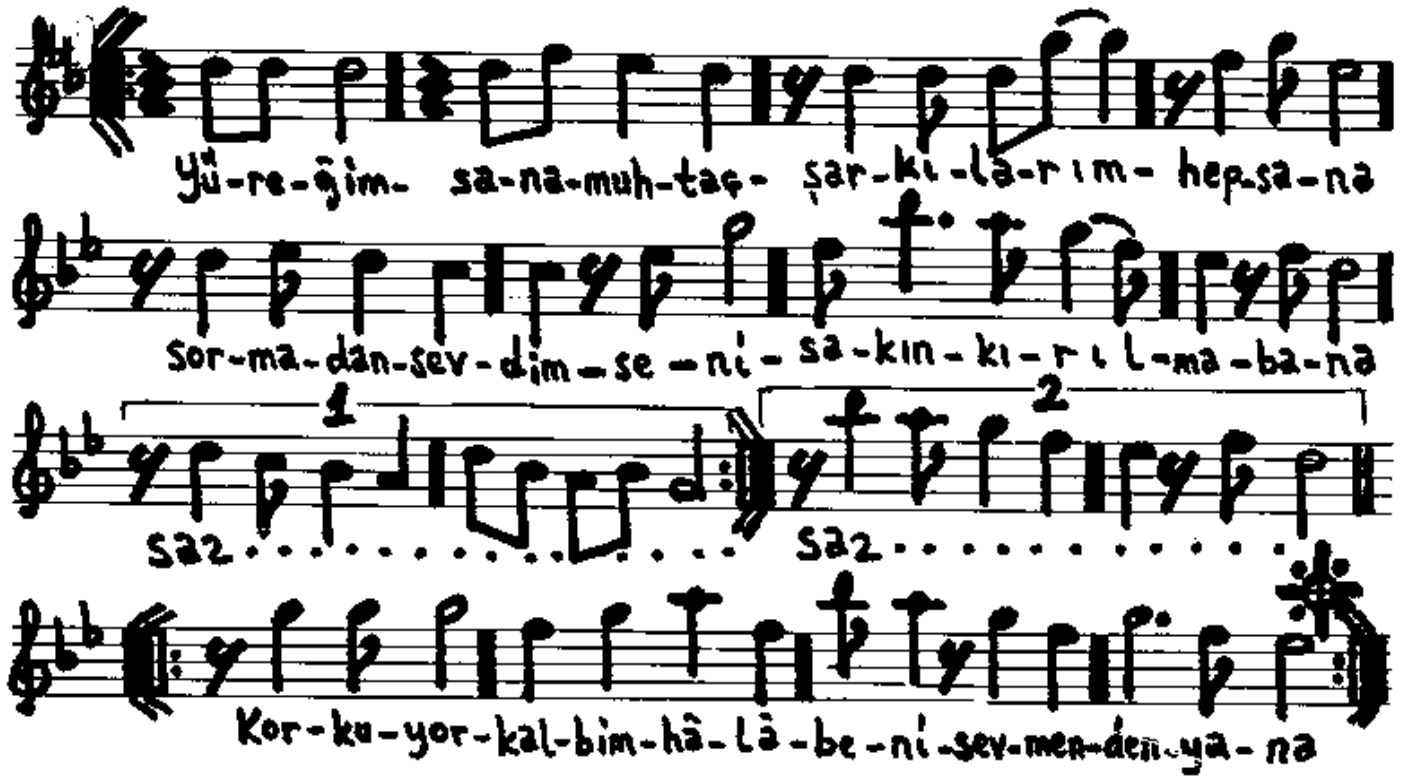 Yü-re-ğim- sa-na-muh-taç- şar-kı-la-rım- hep-sa-na
sor-ma-dan-sev-dim-se-ni- sa-kın-kı-rıl-ma-ba-na
1 2
saz............ saz............
Kor-ku-yor-kal-bim-hâ-lâ-be-ni-sev-men-den-ya-na